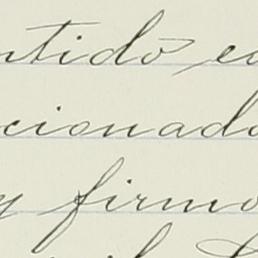 ntido, ec
cionado
y firmo